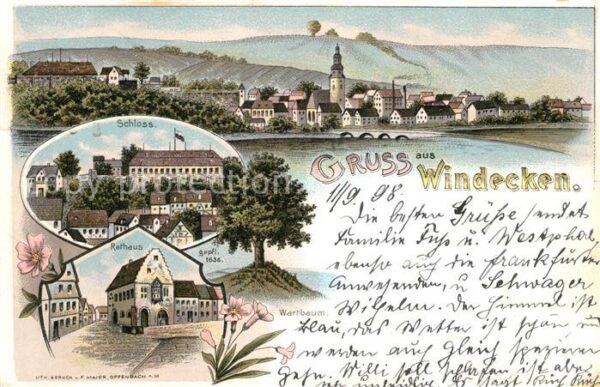 Schloss.
GRUSS aus
Windecken.
11/9 98.
Rathaus
gepfl.
1636.
Wartbaum.
Die besten Grüße sendet
Familie Fuß u. Westphal,
ebenso auch die frankfurter
Anwesenden, u Schwager
Wilhelm. Der Himmel ist
blau, das Wetter ist schön u
werden auch gleich spazieren
gehn. Willi soll
LITH. & DRUCK v. F. MAIER, OFFENBACH A. M